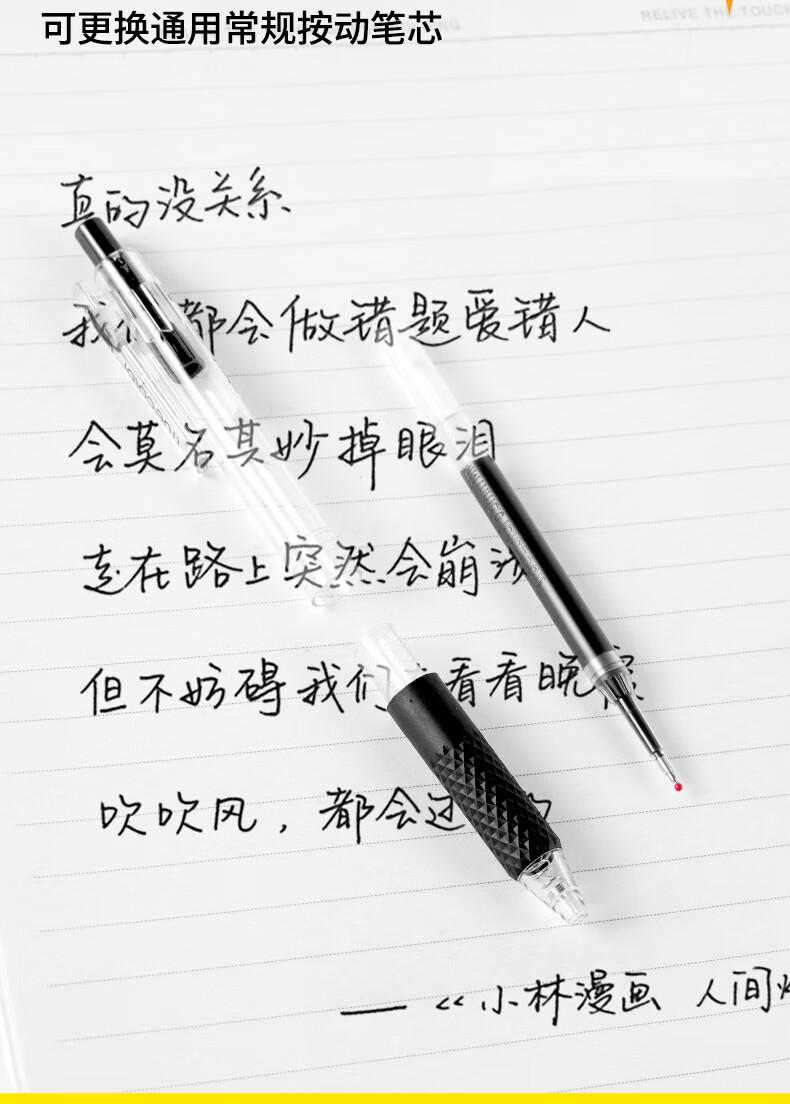 可更换通用常规按动笔芯
RELIVE THE TOUCH
真的没关系
我们都会做错题爱错人
会莫名其妙掉眼泪
走在路上突然会崩溃
但不妨碍我们 看看晚霞
吹吹风，都会过 的
—— 《小林漫画 人间